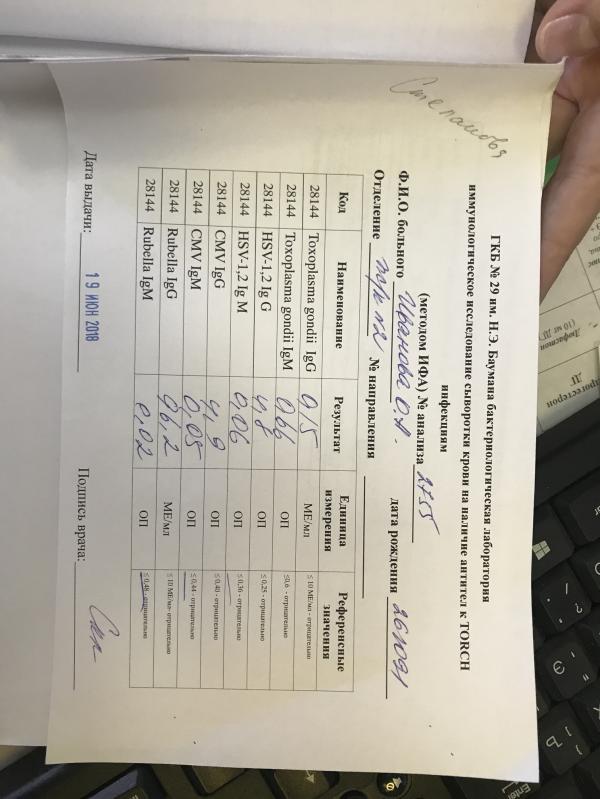 Степанова
ГКБ № 29 им. Н.Э. Баумана бактериологическая лаборатория
иммунологическое исследование сыворотки крови на наличие антител к TORCH
инфекциям
(методом ИФА) № анализа 2755
Ф.И.О. больного Иванова О.А. дата рождения 26.10.91
Отделение № направления
Код Наименование Результат Единица измерения Референсные значения
28144 Toxoplasma gondii IgG 0,15 МЕ/мл ≤ 10 МЕ/мл - отрицательно
28144 Toxoplasma gondii IgM 0,66 ОП ≤0,6 - отрицательно
28144 HSV-1,2 Ig G 4,8 ОП ≤ 0,25 - отрицательно
28144 HSV-1,2 Ig M 0,06 ОП ≤ 0,36 - отрицательно
28144 CMV IgG 4,9 ОП ≤ 0,40 - отрицательно
28144 CMV IgM 0,05 ОП ≤ 0,44 - отрицательно
28144 Rubella IgG 96,2 МЕ/мл ≤ 10 МЕ/мл- отрицательно
28144 Rubella IgM 0,02 ОП ≤ 0,48 - отрицательно
Дата выдачи: 19 ИЮН 2018 Подпись врача:
ДГ
прогестерон
Дюфастон
(10 мг